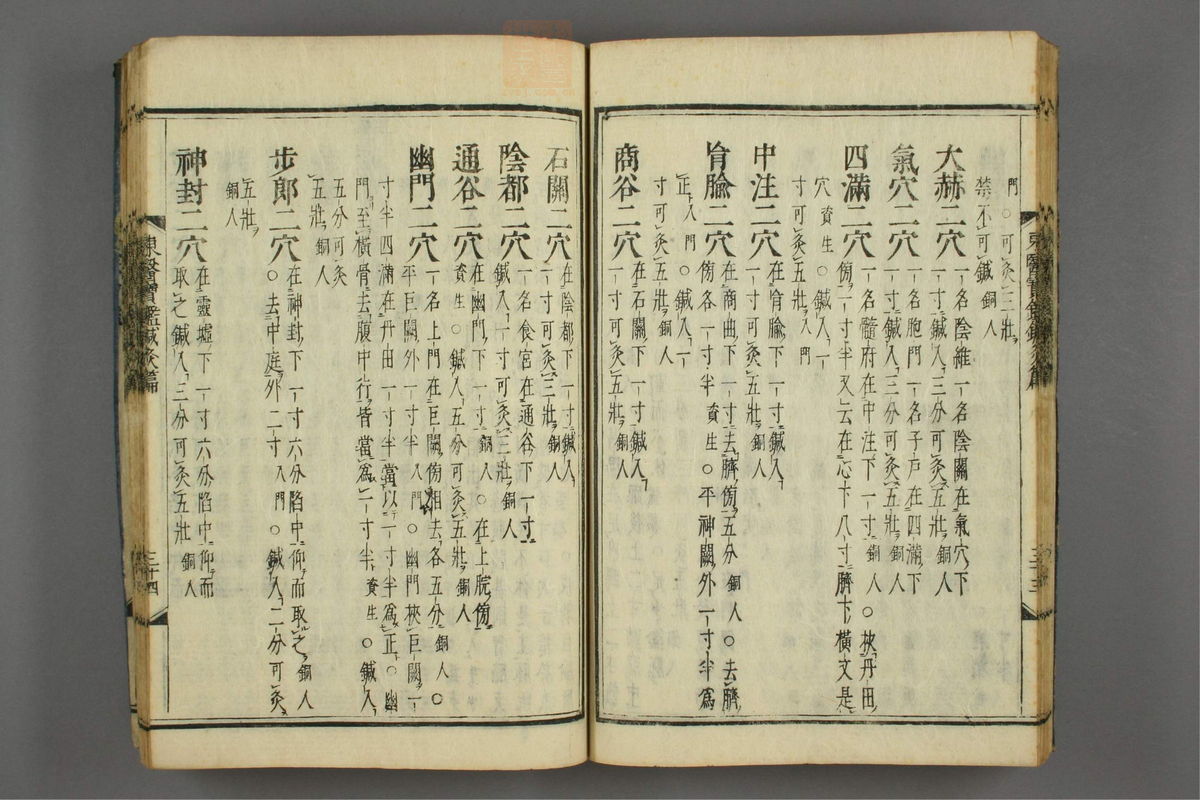 門○可灸三壯
禁不可鍼銅人
大赫二穴一名陰維一名陰關在氣穴下
一寸鍼入三分可灸五壯銅人
氣穴二穴一名胞門一名子戶在四滿下
一寸鍼入三分可灸五壯銅人
四滿二穴一名髓府在中注下一寸銅人○挾丹田
傍一寸半又云在心下八寸臍下橫文是
穴資生○鍼入一
寸可灸五壯入門
中注二穴在肓腧下一寸鍼入
一寸可灸五壯銅人
肓腧二穴在商曲下一寸去臍傍五分銅人○去臍
傍各一寸半資生○平神闕外一寸半爲
正入門○鍼入一
寸可灸五壯銅人
商谷二穴在石關下一寸鍼入
一寸可灸五壯銅人
石關二穴在陰都下一寸鍼入
一寸可灸三壯銅人
陰都二穴一名食宮在通谷下一寸
鍼入一寸可灸三壯銅人
通谷二穴在幽門下一寸銅人○在上脘傍
資生○鍼入五分可灸五壯銅人
幽門二穴一名上門在巨闕傍相去各五分銅人○
平巨闕外一寸半入門○幽門挾巨闕一
寸半四滿在丹田一寸半當以一寸半爲正○幽
門至橫骨去腹中行皆當爲一寸半資生○鍼入
五分可灸
五壯銅人
步郎二穴在神封下一寸六分陷中仰而取之銅人
○去中庭外二寸入門○鍼入二分可灸
五壯
銅人
神封二穴在靈墟下一寸六分陷中仰而
取之鍼入三分可灸五壯銅人
東醫寶鑑鍼灸篇
三十四